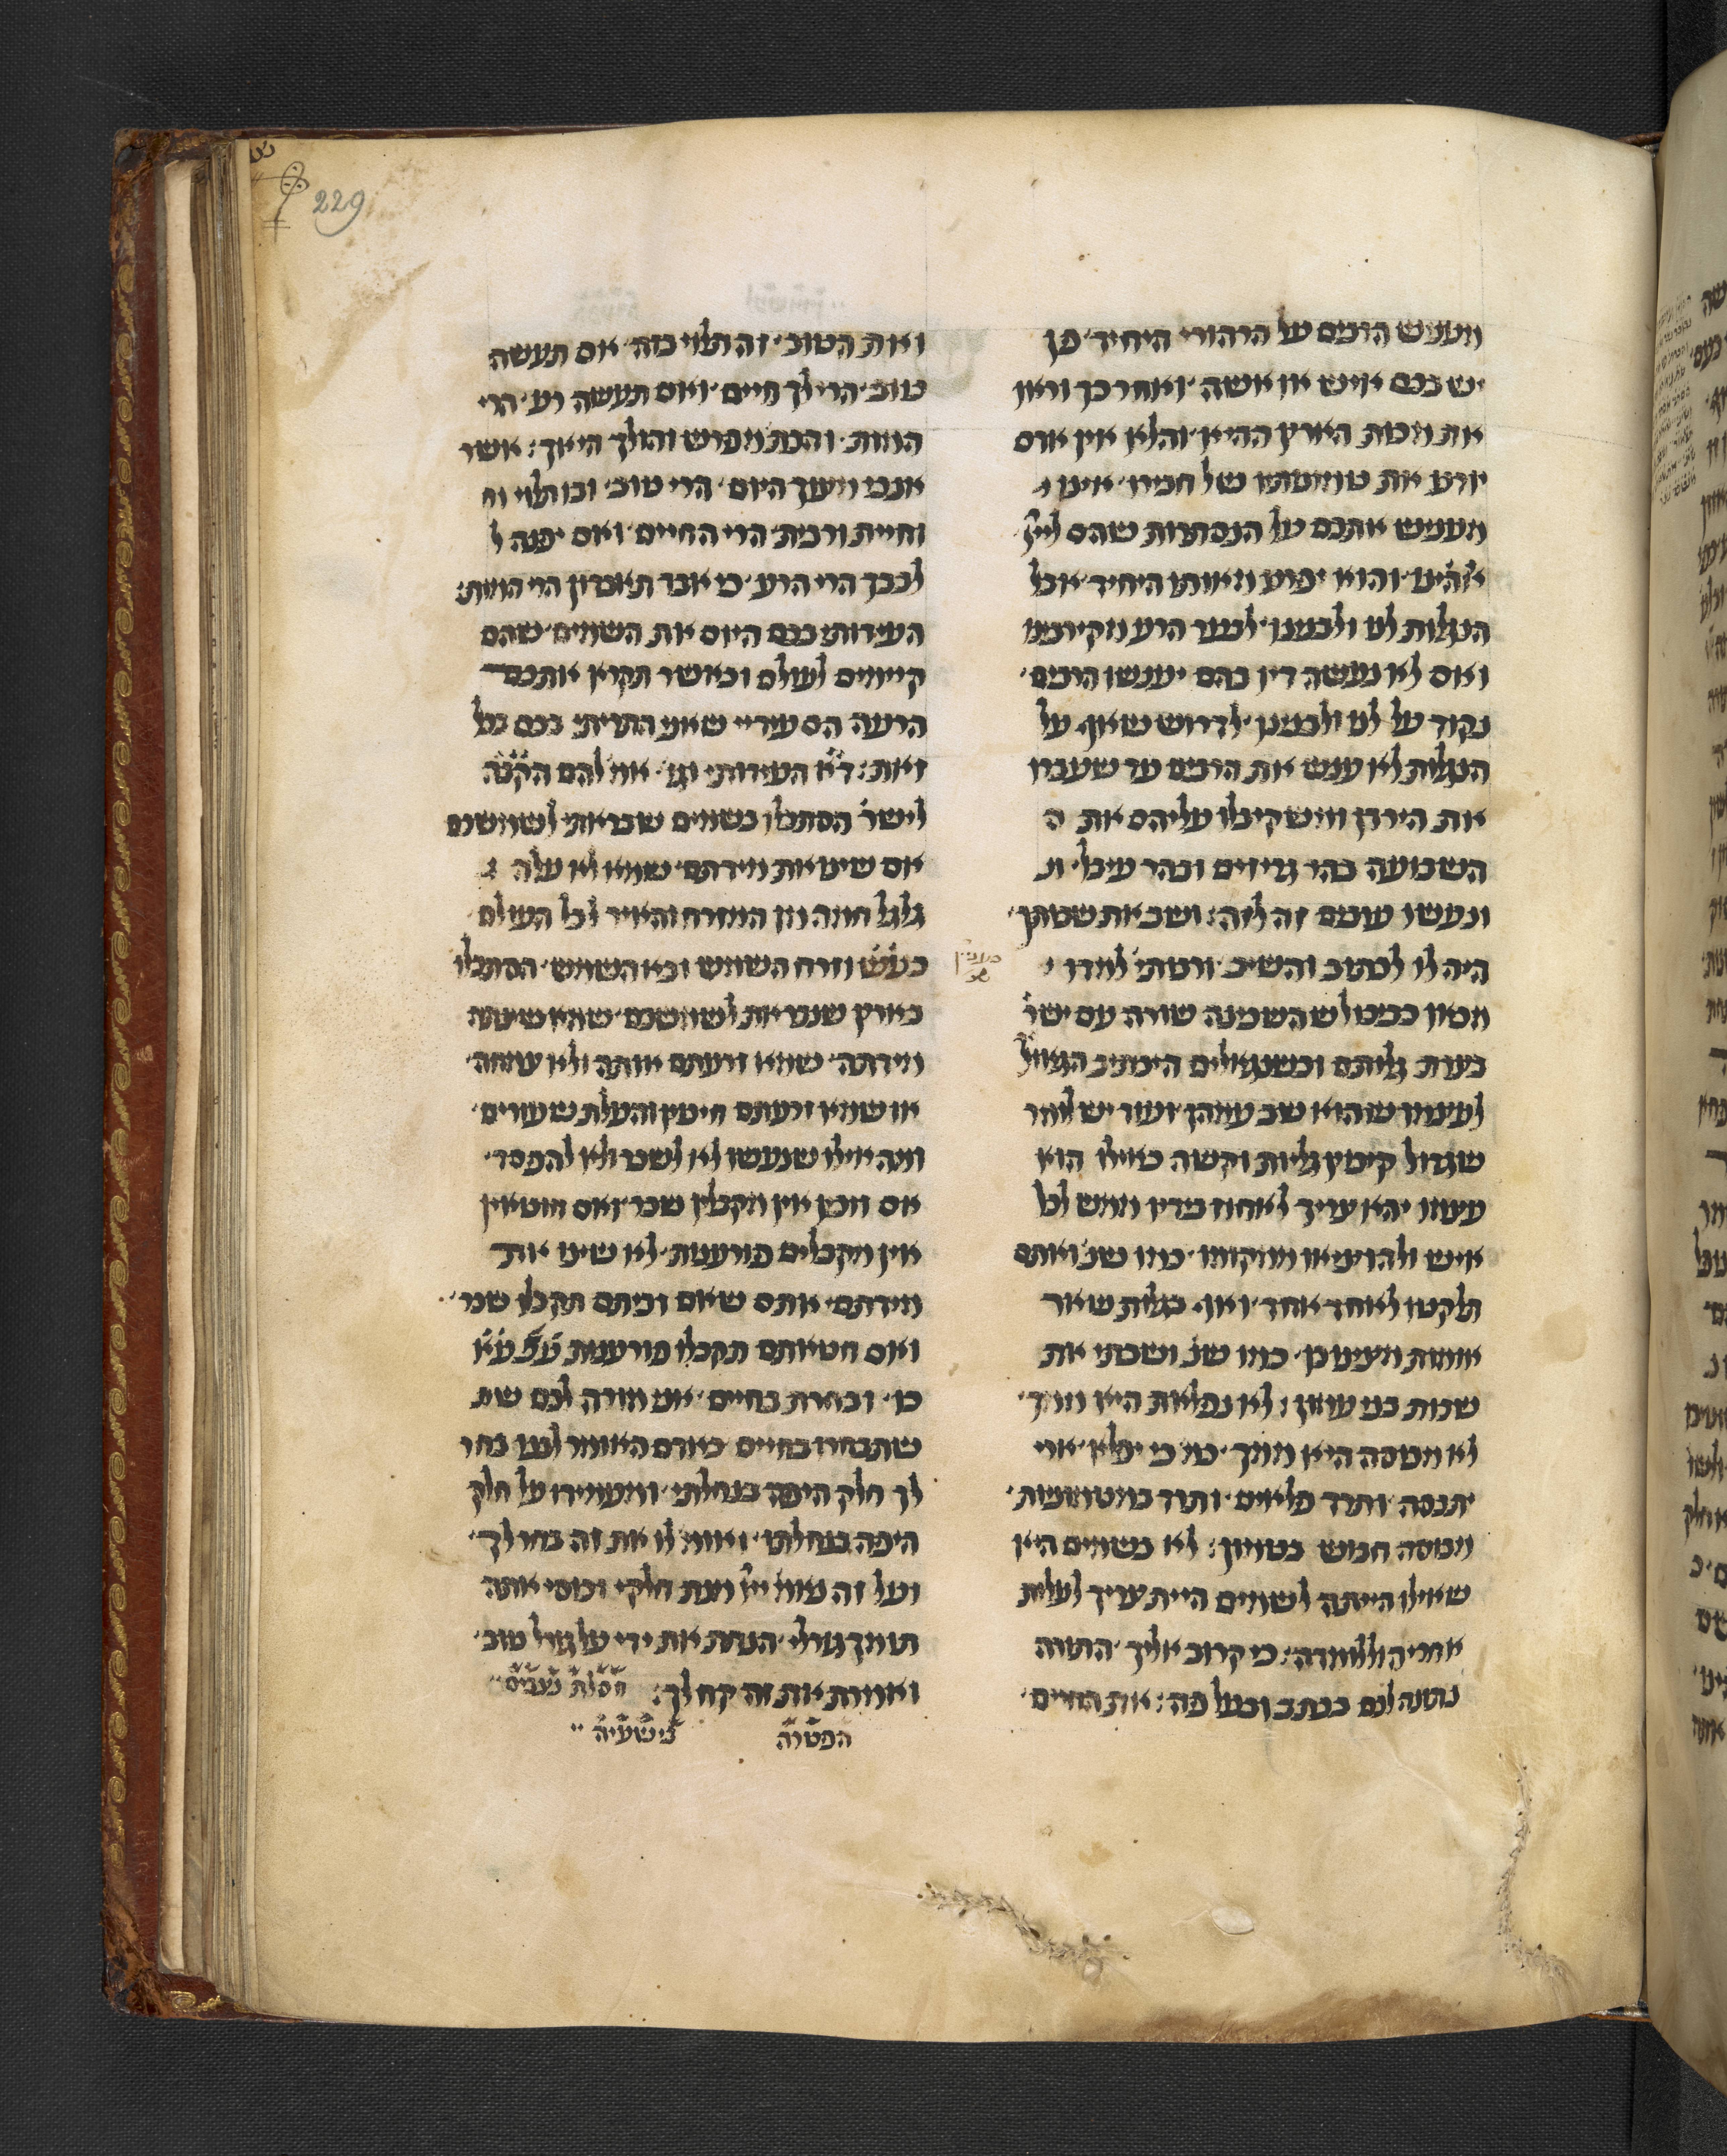 229
מעניש הרבים על הרהורי היחיד׳ פן
יש בכם איש או אשה׳ ואחר כך וראו
את מכות הארץ ההיא׳ והלא אין אדם
יודע את טמונותיו של חבירו׳ איני י
מעניש אתכם על הנסתרות שהם ליי׳
אלהינו׳ והוא יפרע מאותו היחיד׳ אבל
הנגלות לנו ולבנינו׳ לבער הרע מקירבינו
ואם לא נעשה דין בהם יענשו הרבים׳
נקוד על לנו ולבנינו׳ לדרוש שאף על
הנגלות לא ענש את הרבים עד שעברו
את הירדן ומשקיבלו עליהם את ה
השבועה בהר גריזים ובהר עיבל׳ ונ
ונעשו ערבים זה לזה: ושב את שבותך׳
היה לו לכתוב והשיב׳ ורבותי׳ למדו י
מכאן כביכול שהשכינה שורה עם ישר׳
בצרת גלותם וכשנגאלים היכתיב הגאול׳
לעצמו שהוא שב עמהן׳ ועוד יש לומר
שגדול קיבוץ גליות וקשה כאילו הוא
עצמו יהא צריך לאחוז בידיו ממש לכל
איש ולהוציאו ממקומו׳ כמו שנ׳ ואתם
תלקטו לאחד אחד׳ ואף בגלות שאר
אומות מצינו כן׳ כמו שנ׳ ושבתי את
שבות בני עמון: לא נפלאת היא ממך׳
לא מכוסה היא ממך׳ כמו כי יפלא׳ ארי
יתכסה׳ ותרד פלאים׳ ותרד במטמוניות׳
מכוסה חבוש בטמון: לא בשמים היא
שאילו הייתה בשמים היית צריך לעלות
אחריה וללמדה: כי קרוב אליך׳ התורה
נתונה לכם בכתב ובעל פה: את החיים׳
ואת הטוב׳ זה תלוי בזה׳ אם תעשה
טוב׳ הרי לך חיים׳ ואם תעשה רע׳ הרי
המות׳ והכת׳ מפרש והולך היאך: אשר
אנכי מצוך היום׳ הרי טוב׳ ובו תלוי וח
וחיית ורבית׳ הרי החיים׳ ואם יפנה ל
לבבך הרי הרע׳ כי אבד תאבדון הרי המות:
העידותי בכם היום את השמים׳ שהם
קיימים לעולם וכאשר תקרא אתכם
הרעה הם עידיי שאני התריתי בכם בכל
זאת: ד״א העידותי וגו׳ אמ׳ להם הקב״ה
לישר׳ הסתכלו בשמים שבראתי לשמשכם
אם שינו את מידתם׳ שמא לא עלה ג
גלגל חמה מן המזרח והאיר לכל העולם
כענ״ש וזרח השמש ובא השמש׳ הסתכלו
בארץ שבראתי לשמשכם׳ שמא שינתה
מידתה׳ שמא זרעתם אותה ולא צמחה׳
או שמא זרעתם חיטין והעלת שעורים׳
ומה אילו שנעשו לא לשכר ולא להפסד׳
אם זוכין אין מקבלין שכר׳ ואם חוטאין
אין מקבלים פורענות׳ לא שינו את
מידתם׳ אתם שאם זכיתם תקבלו שכר׳
ואם חטאתם תקבלו פורענות עכ״א
כו׳ ובחרת בחיים׳ אני מורה לכם שת
שתבחרו בחיים כאדם האומר לבנו בחר
לך חלק היפה בנחלתי׳ ומעמידו על חלק
היפה בנחלתו׳ ואומ׳ לו את זה בחר לך׳
ועל זה אומ׳ יי׳ מנת חלקי וכוסי אתה
תומך גורלי׳ הנחת את ידי על גורל טוב׳
ואמרת את זה קח לך: חסלת נצבים
הפטרה בישעיה